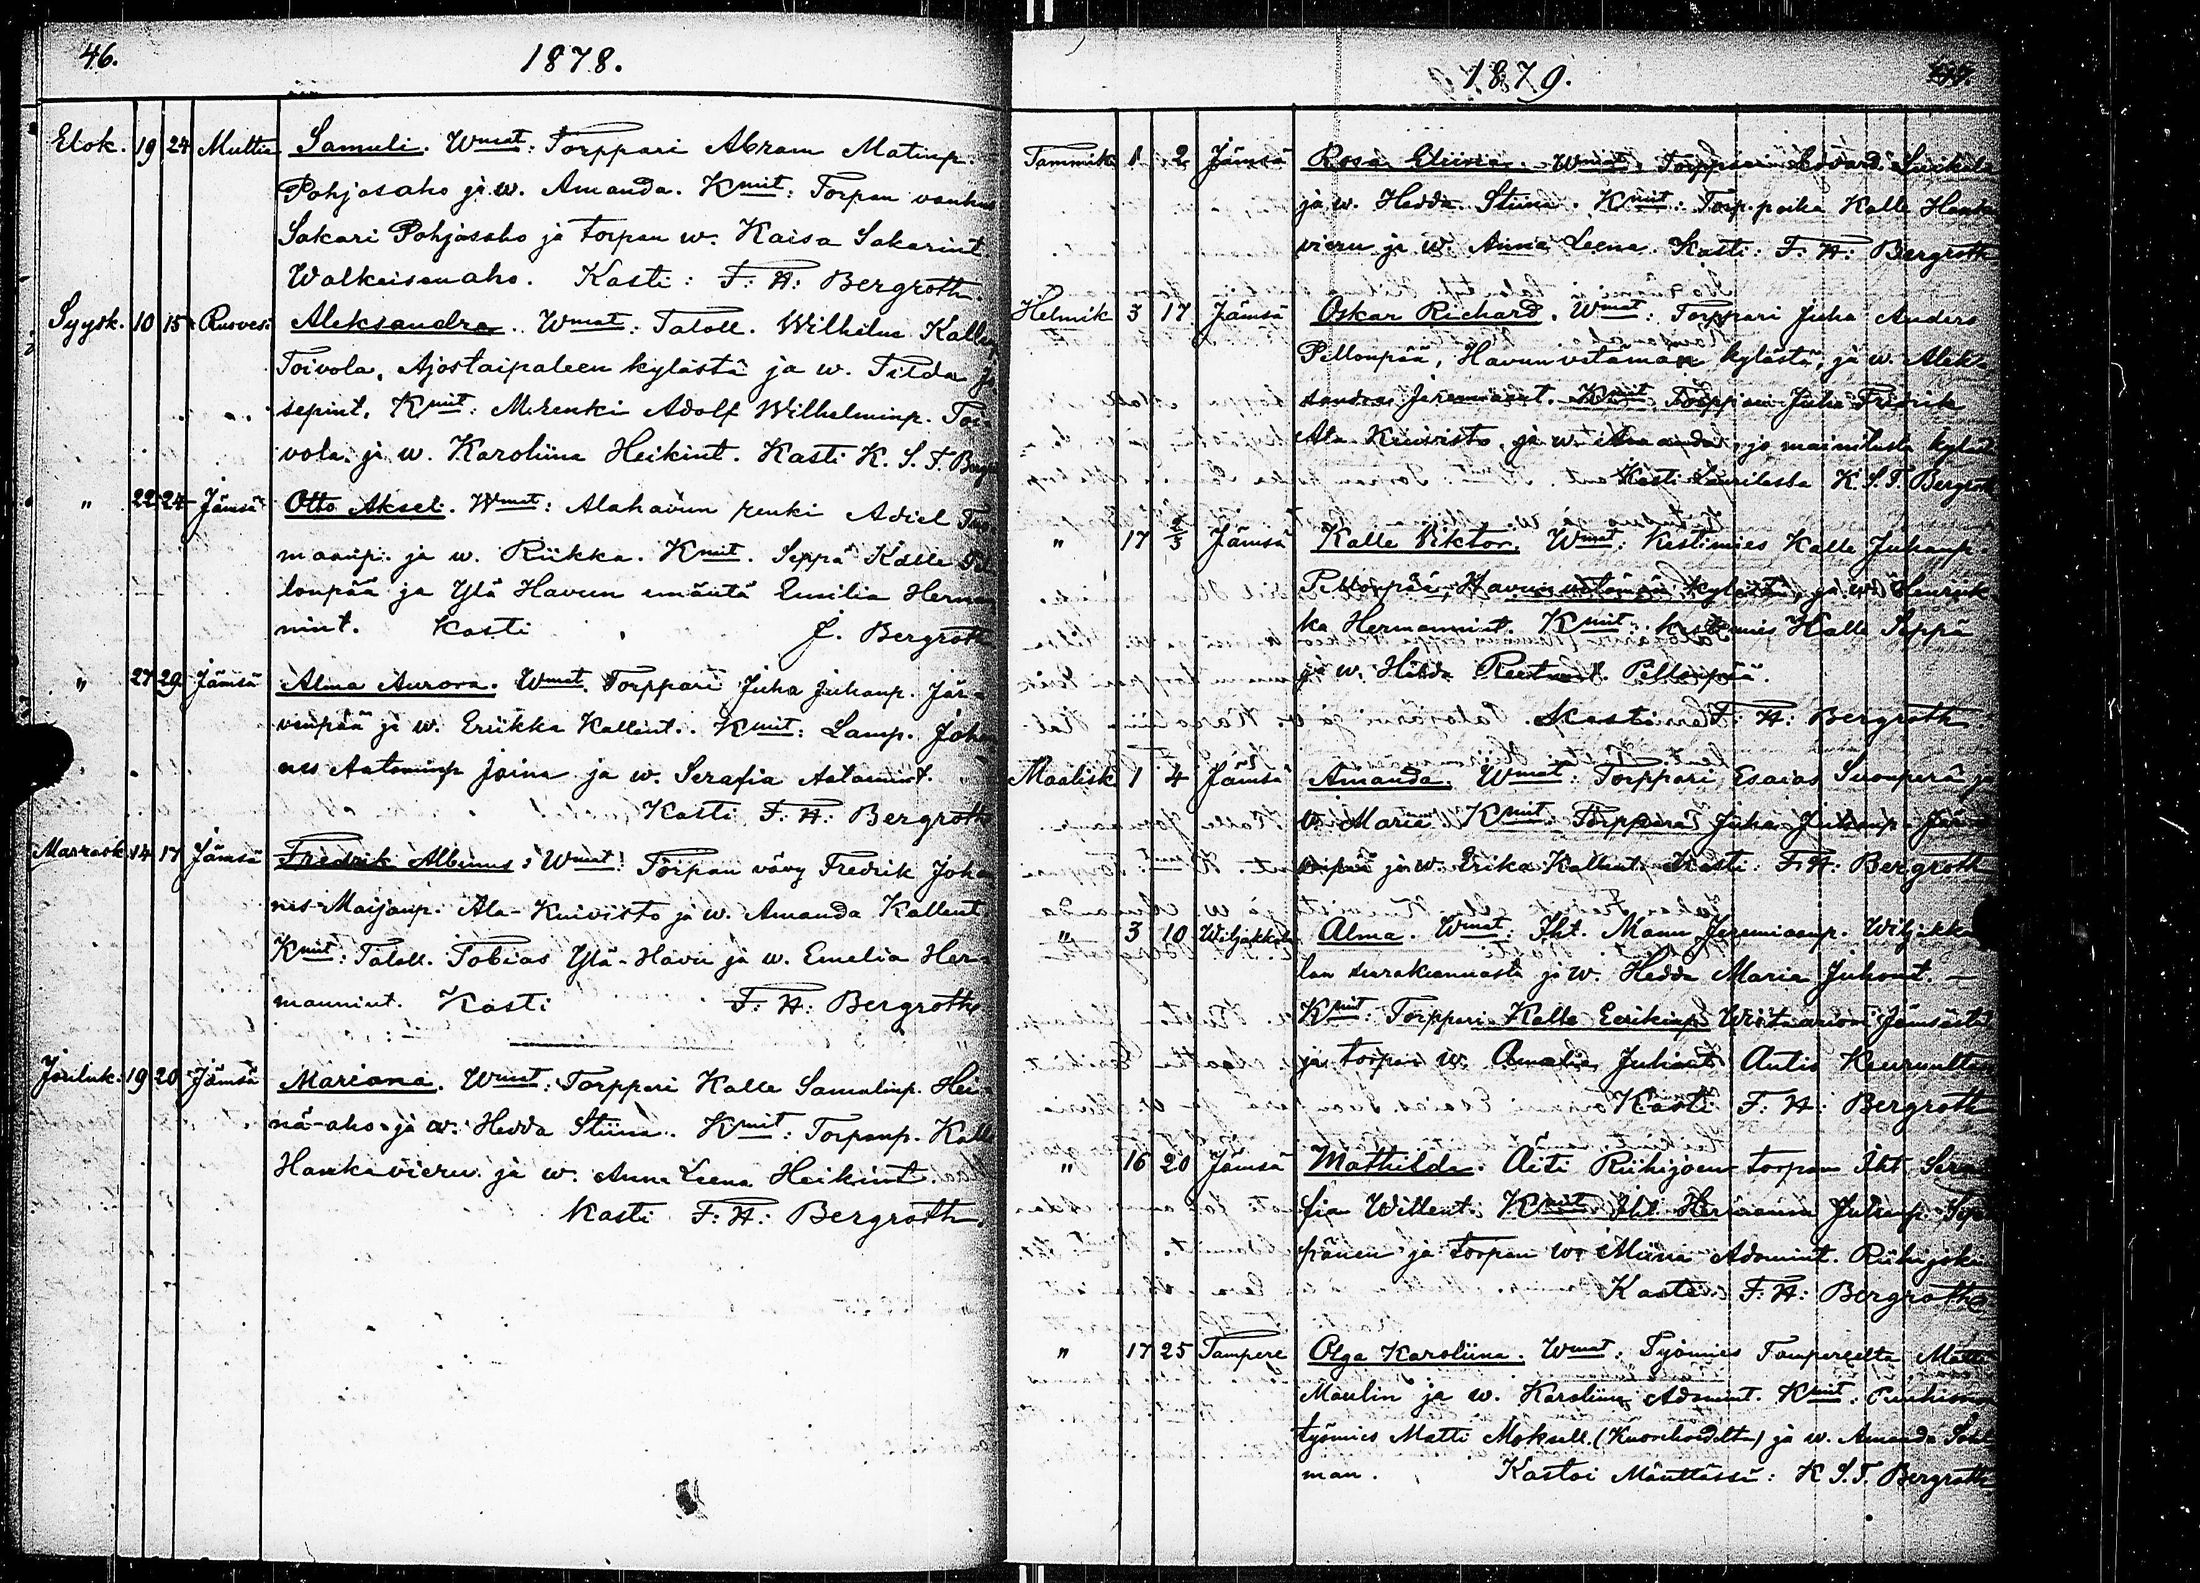 46.
1878.
Elok. 19 24 Multia Samuli. Wmat: Torppari Abram Matinp.
Pohjasaho ja w. Amanda. Kmit: Torpan vanhus
Sakari Pohjasaho ja torpan w. Kaisa Sakarint.
Walkeisenaho. Kasti: F. H: Bergroth.
Syysk. 10 15 Ruovesi Aleksandra. Wmat: Taloll. Wilhelm Kallenp.
Toivola, Ajostaipaleen kylästä ja w. Tilda Jo
sepint. Kmit: M.renki Adolf Wilhelminp. Toi-
vola ja w. Karoliina Heikint. Kasti K. S. F. Bergr
" 22 24 Jämsä Otto Aksel. Wmat: Alahavun renki Adiel Tuo
maanp. ja w. Riikka. Kmit. Seppä Kalle Pel
lonpää ja Ylä Havun emäntä Emilia Herman
nint. Kasti J. Bergroth
" 27 29 Jämsä Alma Aurora. Wmat. Torppari Juha Juhanp. Jär-
vinpää ja w. Eriikka Kallent. Kmit: Lamp. Johan
nes Aatominp Joina ja w. Serafia Aatamint.
Kasti F. H: Bergroth
Marrask. 14 17 Jämsä Fredrik Albinus: Wmat: Torpan vävy Fredrik Johan
nes Maijanp. Ala-Kuivisto ja w. Amanda Kallent
Kmit: Taloll. Tobias Ylä-Havu ja w. Emelia Her-
mannint. Kasti F: H: Bergroth
Jouluk. 19 20 Jämsä Mariana. Wmat: Torppari Kalle Samulinp. Hei-
nä-aho ja w. Hedda Stiina. Kmit: Torpanp. Kalle
Hankavieru ja w. Anna Leena Heikint.
Kasti F: H: Bergroth.
1879.
Tammik 1 2 Jämsä Rosa Eliina. Wmat: Torppari Edvard
ja w. Hedda Stiina. Kmit: Torp.poika Kalle Hanka
vieru ja w. Anna Leena. Kasti: F. H: Bergroth
Helmik 3 17 Jämsä Oskar Richard. Wmat: Torppari Juha Anders
Pellonpää, Havunvetämän kylästä, ja w. Alek-
sandra Jeremiaant. Kmit Torppari Juha Fredrik
Ala Kuivisto ja w. Amanda jo mainitusta kyläst
Kasti Laurilassa K. S. F. Bergroth
" 17 2/3 Jämsä Kalle Viktor. Wmat: Kestimies Kalle Juhanp.
Pellonpää, Havunvetämän kylästä, ja w. Henriik
ka Hermannint. Kmit: Kestimies Kalle Seppä
ja w. Hilda Pellonpää.
Kasti F: H: Bergroth
Maalisk 1 4 Jämsä Amanda. Wmat: Torppari Esaias Suonperä ja
w. Maria Kmit. Torppari Juha Juhanp Jär
vinpää ja w. Erika Kallent Kasti: F. H: Bergroth
" 3 10 Wiljakkala Alma. Wmat: Iht. Manu Jeremiaanp. Wiljakka
lan seurakunnasta ja w. Hedda Maria Juhont.
Kmit: Torppari Kalle Eerikinp Jämsästä
ja torpan w. Amalia Juhant Keuruulta
Kasti F: H: Bergroth
" 16 20 Jämsä Mathilda. Äiti Riihijoen torpan Iht Sera
fia Willent. Kmit Iht Hermanni Juhanp. Sep
pänen ja torpan w. Miina Adamint. Riihijoki
Kasti F. H: Bergroth
" 17 25 Tampere Olga Karoliina. Wmat. Työmies Tampereelta Matti
Maulin ja w. Karoliina Adamint. Kmit:
työmies Matti Moksell. (Kuorehvedeltä) ja w. Amanda
man. Kastoi Mänttässä: K. S. F. Bergroth